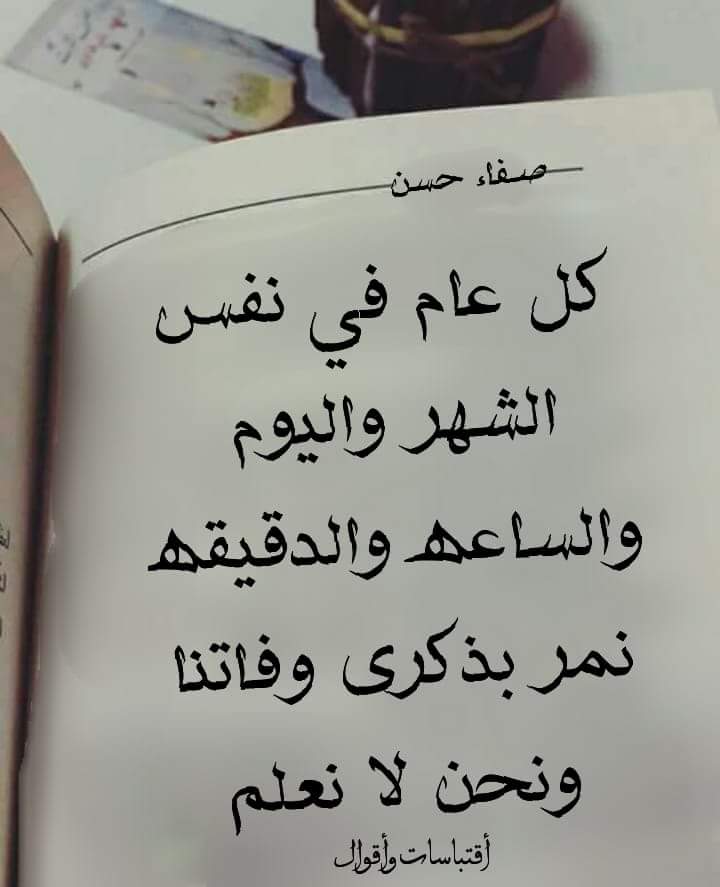 صفاء حسن
كل عام في نفس
الشهر واليوم
والساعه والدقيقه
نمر بذكرى وفاتنا
ونحن لا نعلم
أقتباسات وأقوال